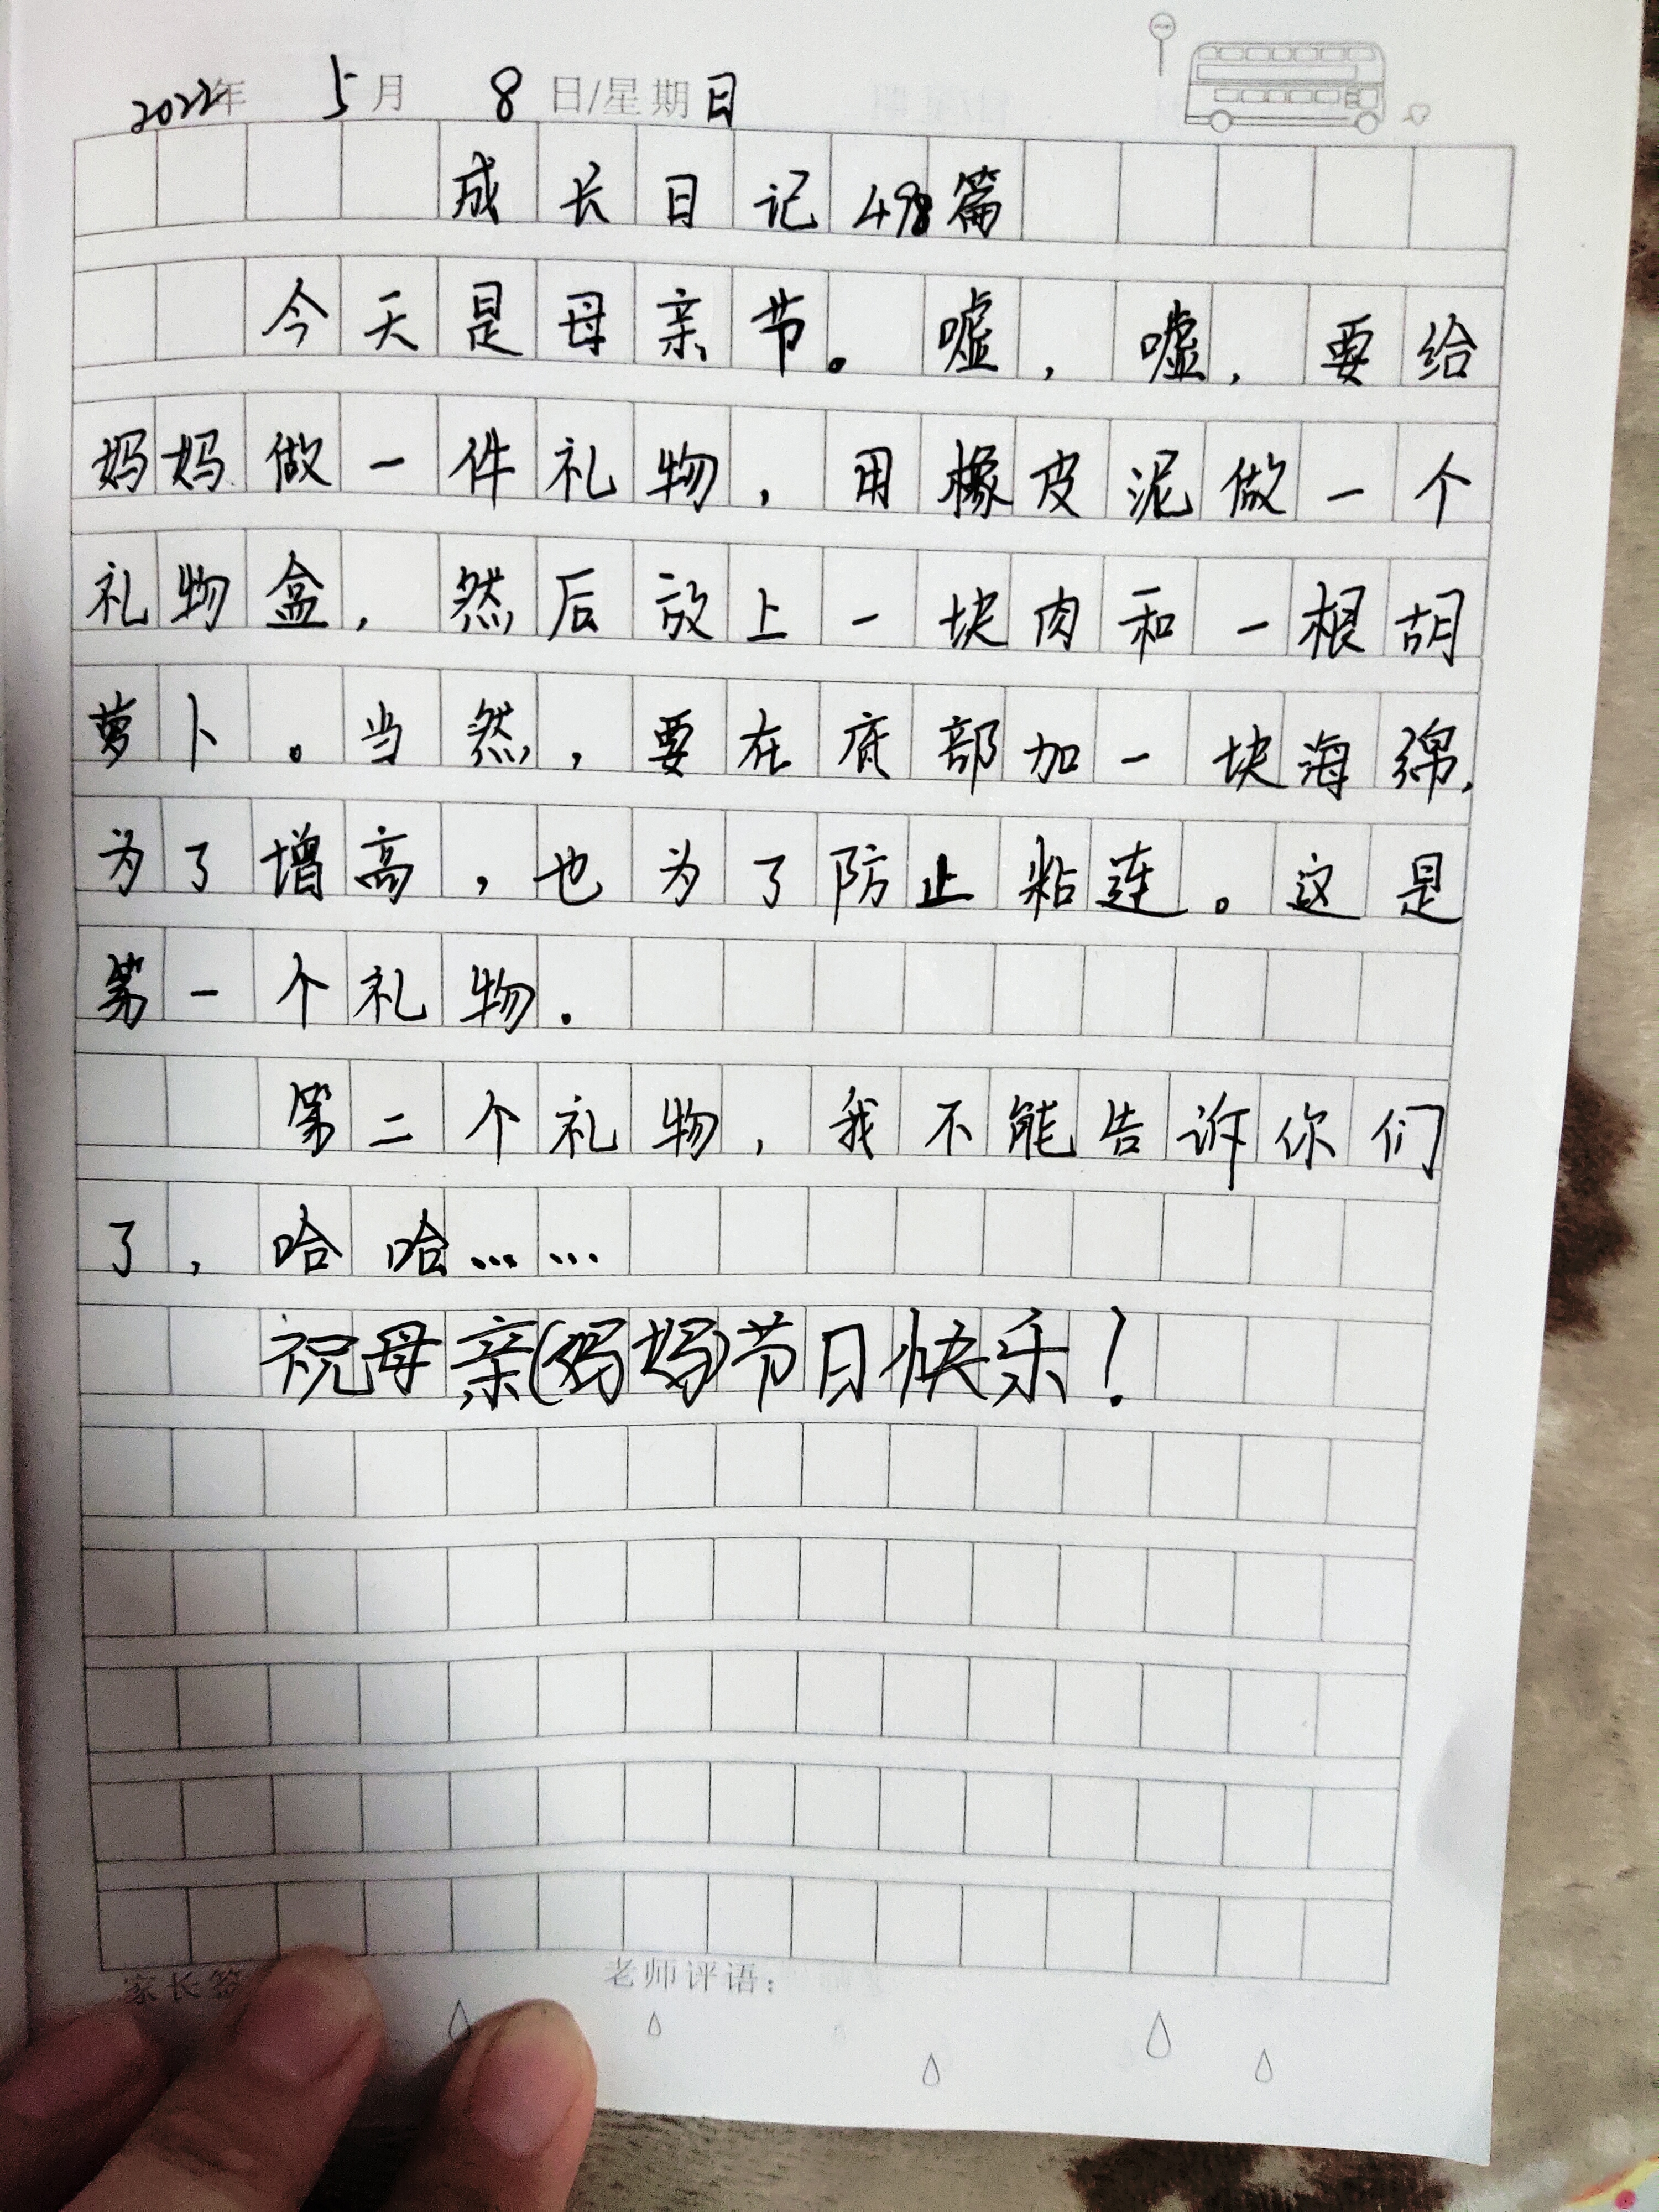 2022年 5月 8日/星期日
成长日记498篇
今天是母亲节。嘘,嘘,要给
妈妈做一件礼物,用橡皮泥做一个
礼物盒,然后放上一块肉和一根胡
萝卜。当然,要在底部加一块海绵,
为了增高,也为了防止粘连。这是
第一个礼物.
第二个礼物,我不能告诉你们
了,哈哈……
祝母亲(妈妈)节日快乐!
家长签
老师评语: